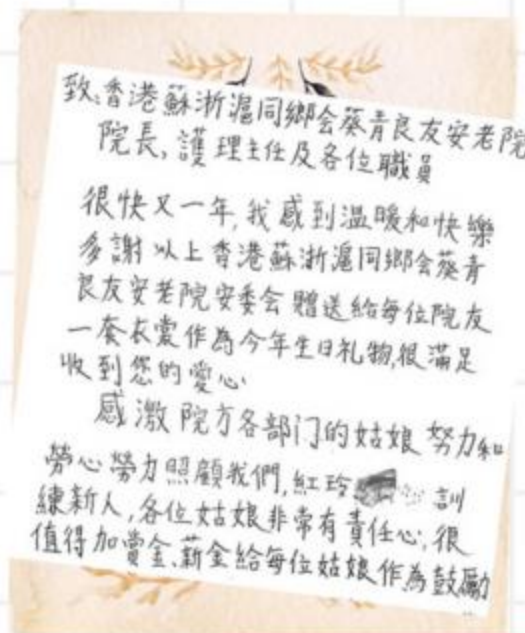 致:香港蘇浙滬同鄉会葵青良友安老院
院長,護理主任及各位職員
很快又一年,我感到溫暖和快樂
多謝以上香港蘇浙滬同鄉会葵青
良友安老院安委会贈送給每位院友
一套衣裳作為今年生日礼物,很滿足
收到您的愛心
感激院方各部门的姑娘努力和
勞心勞力照顧我們,紅玲 訓
練新人,各位姑娘非常有責任心,很
值得加賞金.薪金給每位姑娘作為鼓勵